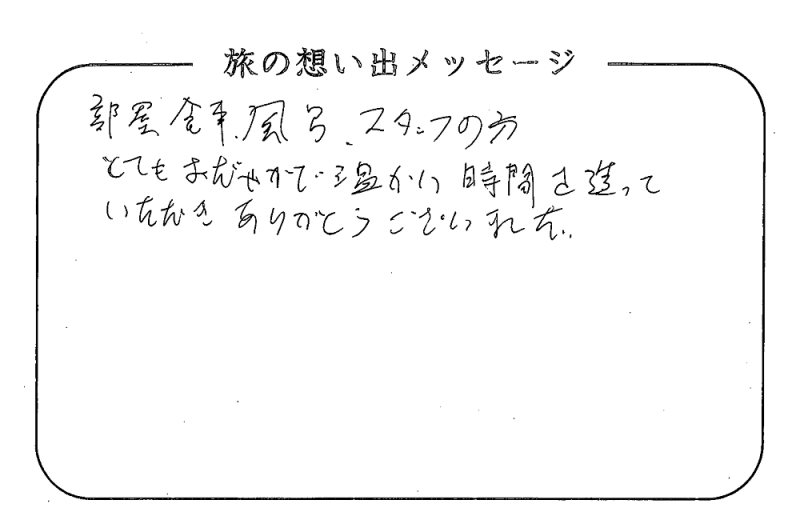 旅の想い出メッセージ
部屋食事、風呂、スタッフの方
とてもおだやかで温かい時間を送って
いただきありがとうございました。